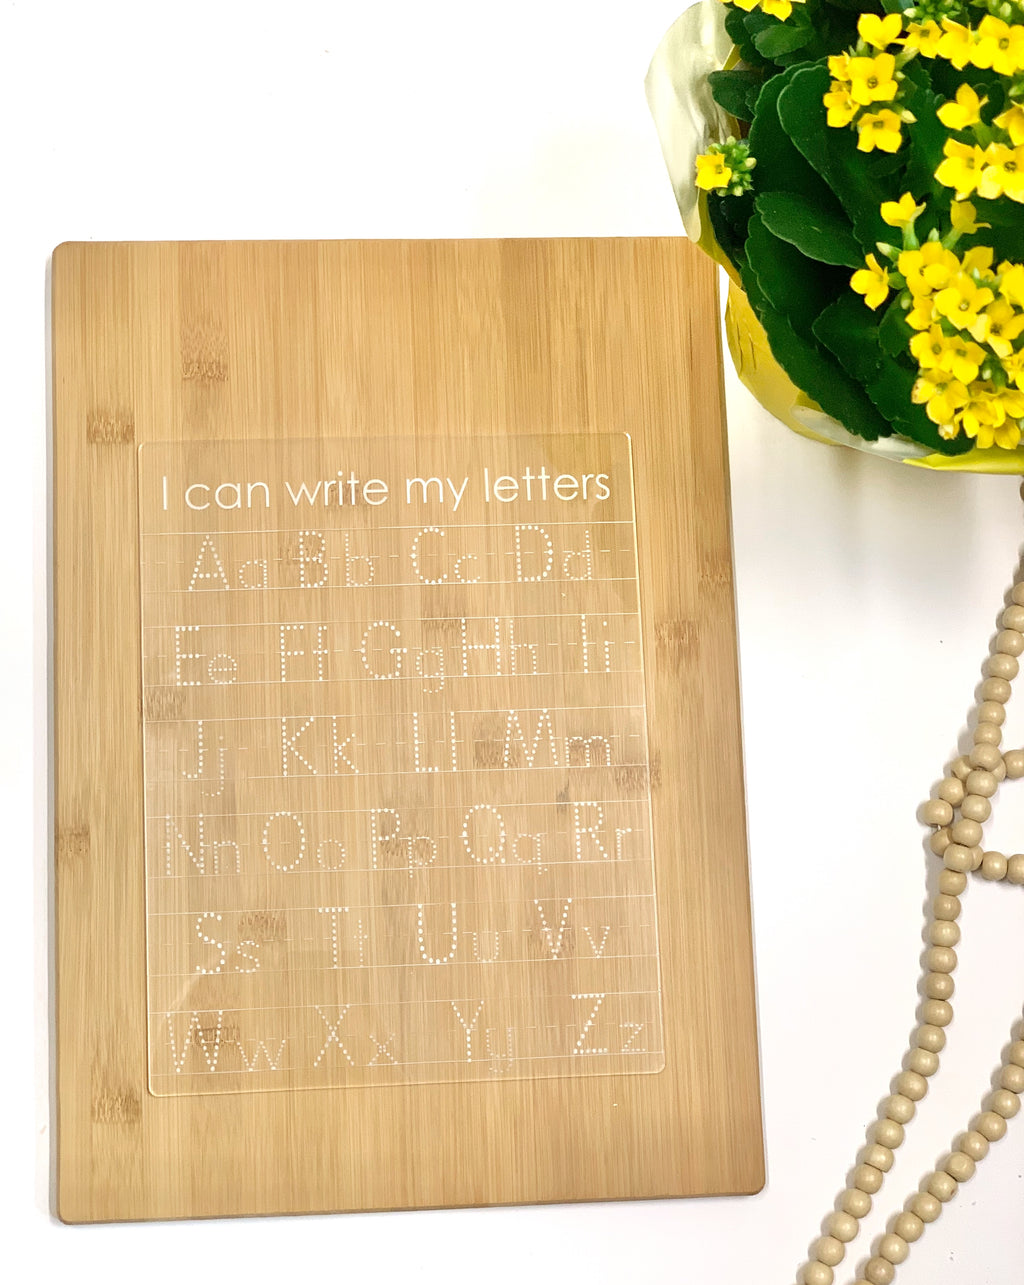 I can write my letters
Aa Bb Cc Dd
Ee Ff Gg Hh Ii
Jj Kk Ll Mm
Nn Oo Pp Qq Rr
Ss Tt Uu Vv
Ww Xx Yy Zz